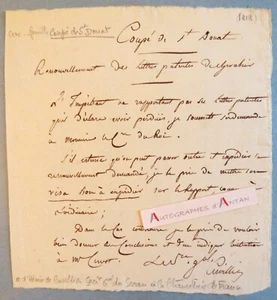 1818
Coupé de St Donat
Coupé de St Donat
Renouvellement des lettres patentes de Chevalier
L'Impétrant ne rapportant pas ses lettres patentes
qu'il déclare avoir perdues, je soumets sa demande
à Monsieur le Cre du Roi.
S'il estime qu'on peut passer outre et expédier le
renouvellement demandé, je le prie de mettre son
visa bon à expédier sur le Rapport comme à
l'ordinaire ;
Dans le cas contraire, je le prie de vouloir
bien donner des Conclusions et d'en indiquer
à Mr Cuvot.
AUTOGRAPHES D'ANTAN
Le Sre Gal